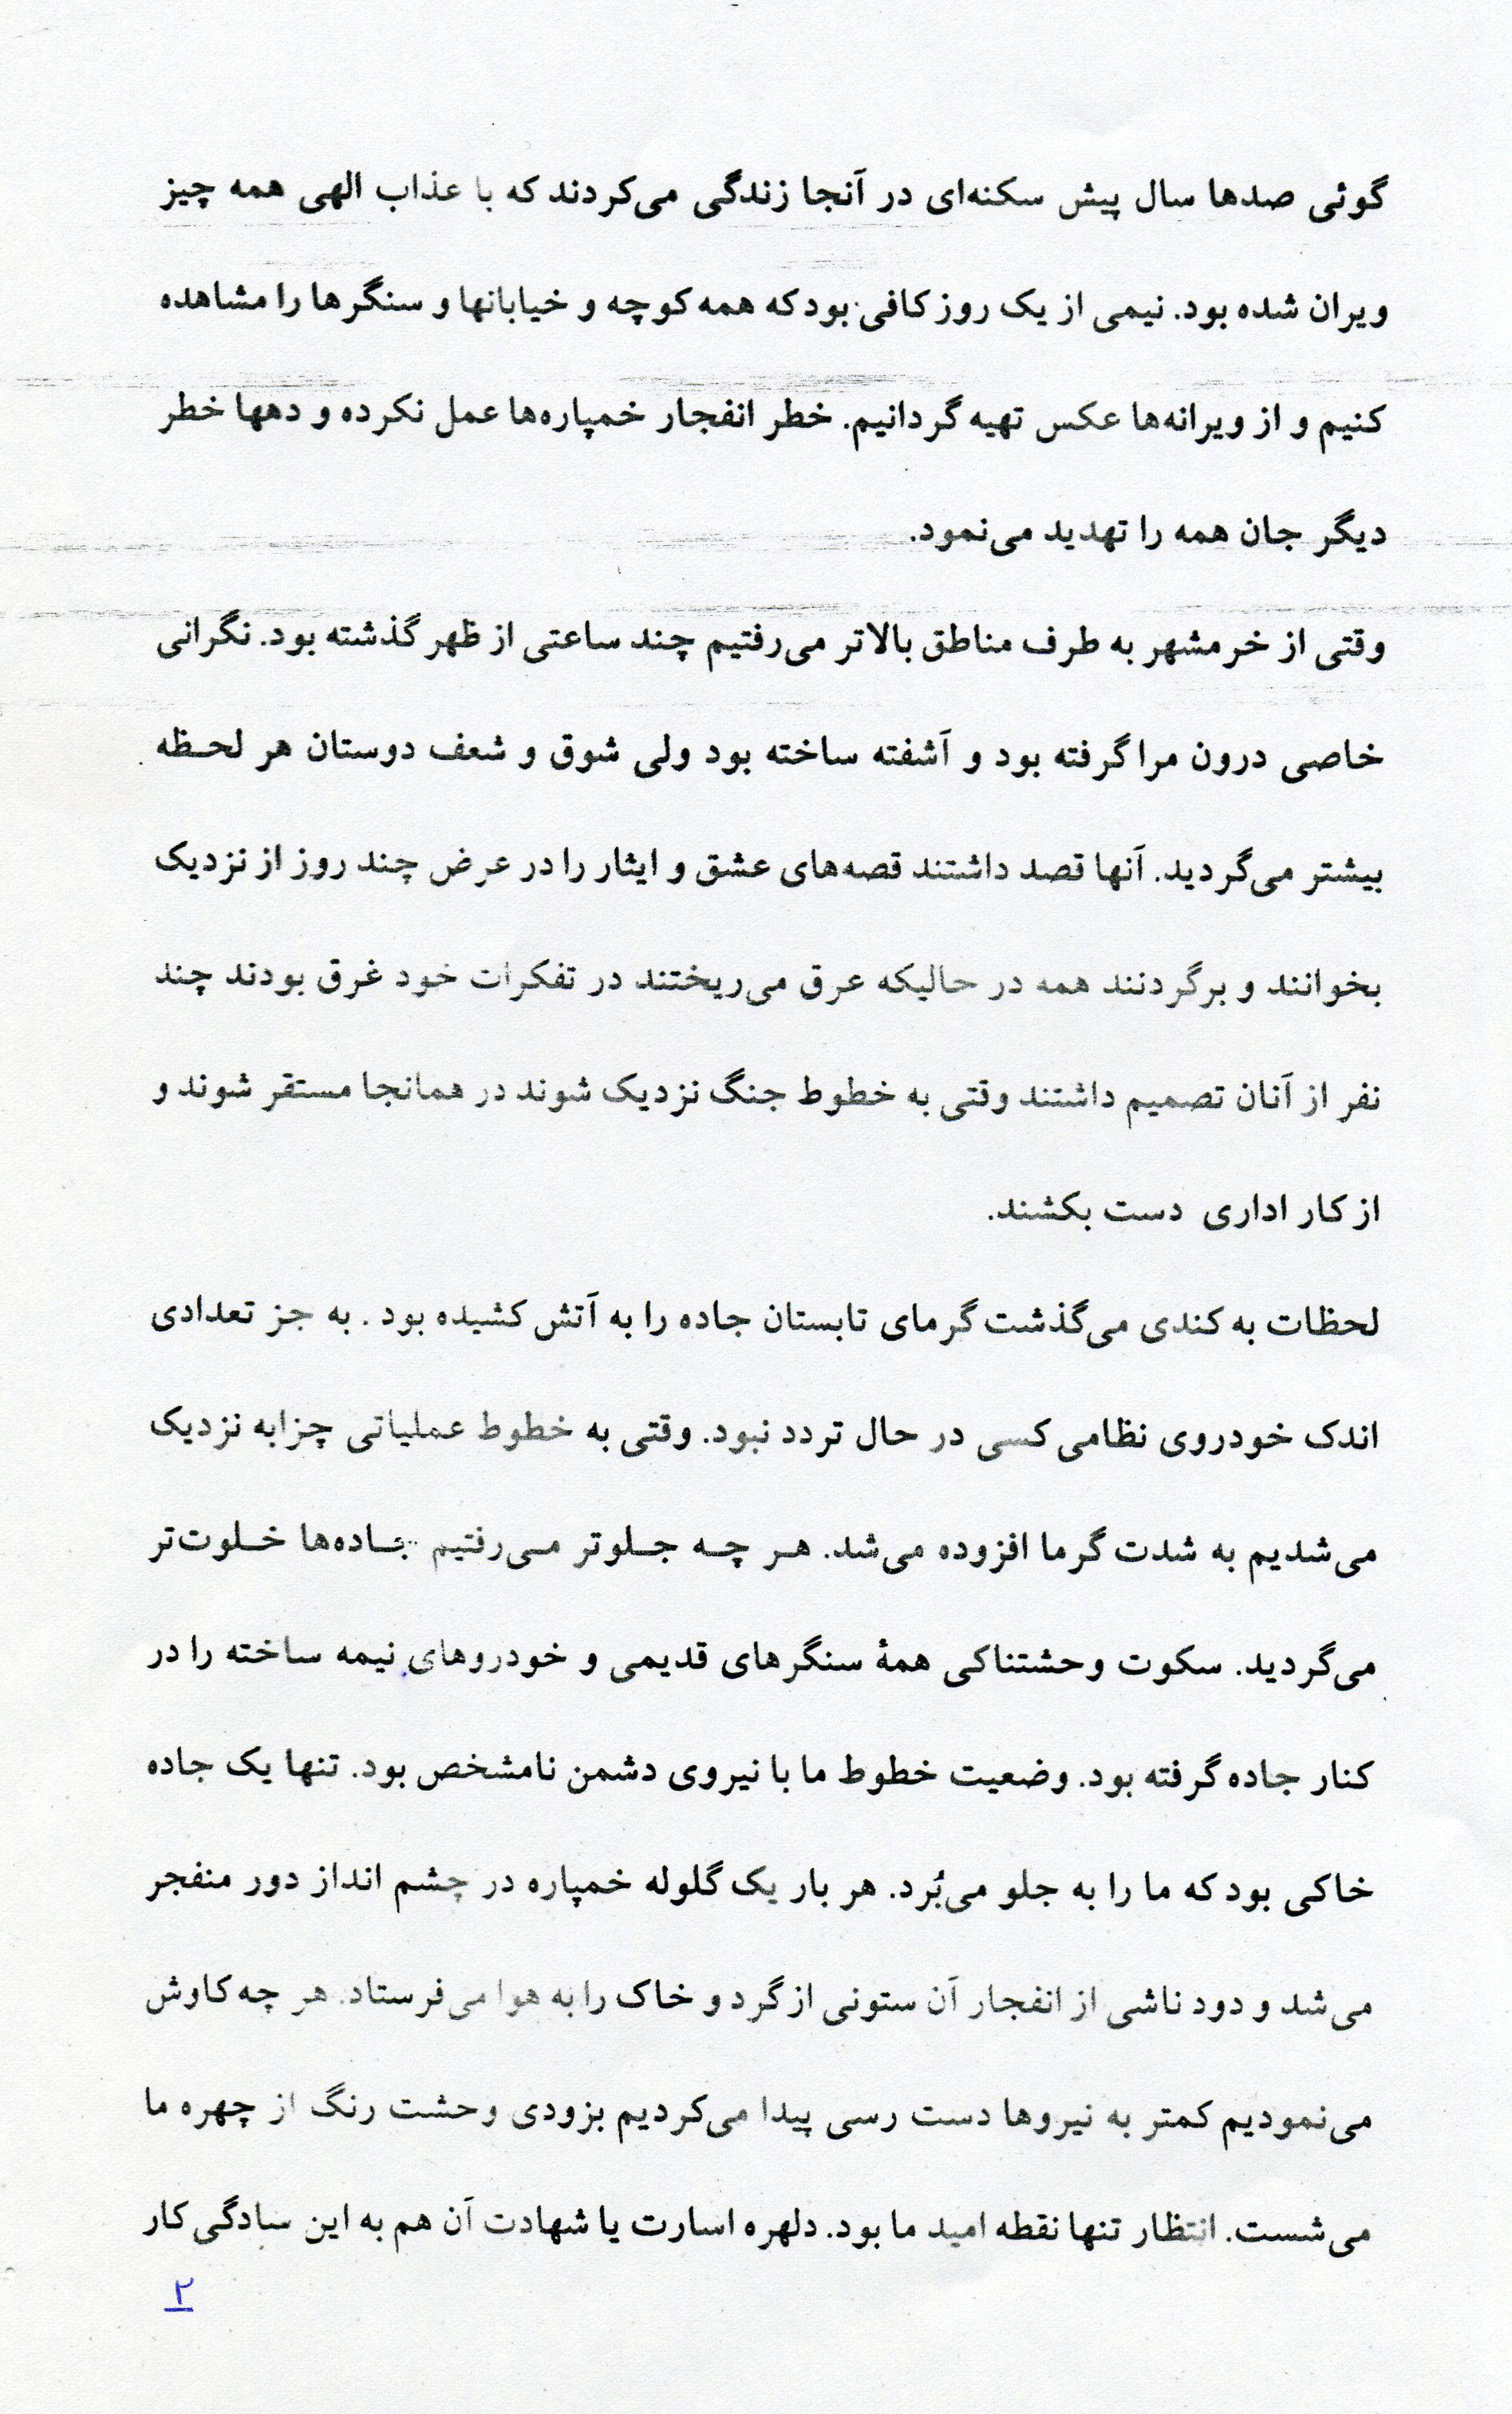 گوئی صدها سال پیش سکنه‌ای در آنجا زندگی می‌کردند که با عذاب الهی همه چیز
ویران شده بود. نیمی از یک روز کافی بود که همه کوچه و خیابانها و سنگرها را مشاهده
کنیم و از ویرانه‌ها عکس تهیه گردانیم. خطر انفجار خمپاره‌ها عمل نکرده و دهها خطر
دیگر جان همه را تهدید می‌نمود.
وقتی از خرمشهر به طرف مناطق بالاتر می‌رفتیم چند ساعتی از ظهر گذشته بود. نگرانی
خاصی درون مرا گرفته بود و آشفته ساخته بود ولی شوق و شعف دوستان هر لحـظه
بیشتر می‌گردید. آنها قصد داشتند قصه‌های عشق و ایثار را در عرض چند روز از نزدیک
بخوانند و برگردنند همه در حالیکه عرق می‌ریختند در تفکرات خود غرق بودند چند
نفر از آنان تصمیم داشتند وقتی به خطوط جنگ نزدیک شوند در همانجا مستقر شوند و
از کار اداری دست بکشند.
لحظات به کندی می‌گذشت گرمای تابستان جاده را به آتش کشیده بود . به جز تعدادی
اندک خودروی نظامی کسی در حال تردد نبود. وقتی به خطوط عملیاتی چزابه نزدیک
می‌شدیم به شدت گرما افزوده می‌شد. هـر چـه جـلوتر مـی‌رفتیم جـاده‌ها خـلوت‌تر
می‌گردید. سکوت وحشتناکی همهٔ سنگرهای قدیمی و خودروهای نیمه ساخته را در
کنار جاده گرفته بود. وضعیت خطوط ما با نیروی دشمن نامشخص بود. تنها یک جاده
خاکی بود که ما را به جلو می‌بُرد. هر بار یک گلوله خمپاره در چشم انداز دور منفجر
می‌شد و دود ناشی از انفجار آن ستونی از گرد و خاک را به هوا می‌فرستاد. هر چه کاوش
می‌نمودیم کمتر به نیروها دست رسی پیدا می‌کردیم بزودی وحشت رنگ از چهره ما
می‌شست. انتظار تنها نقطه امید ما بود. دلهره اسارت یا شهادت آن هم به این سادگی کار
۲